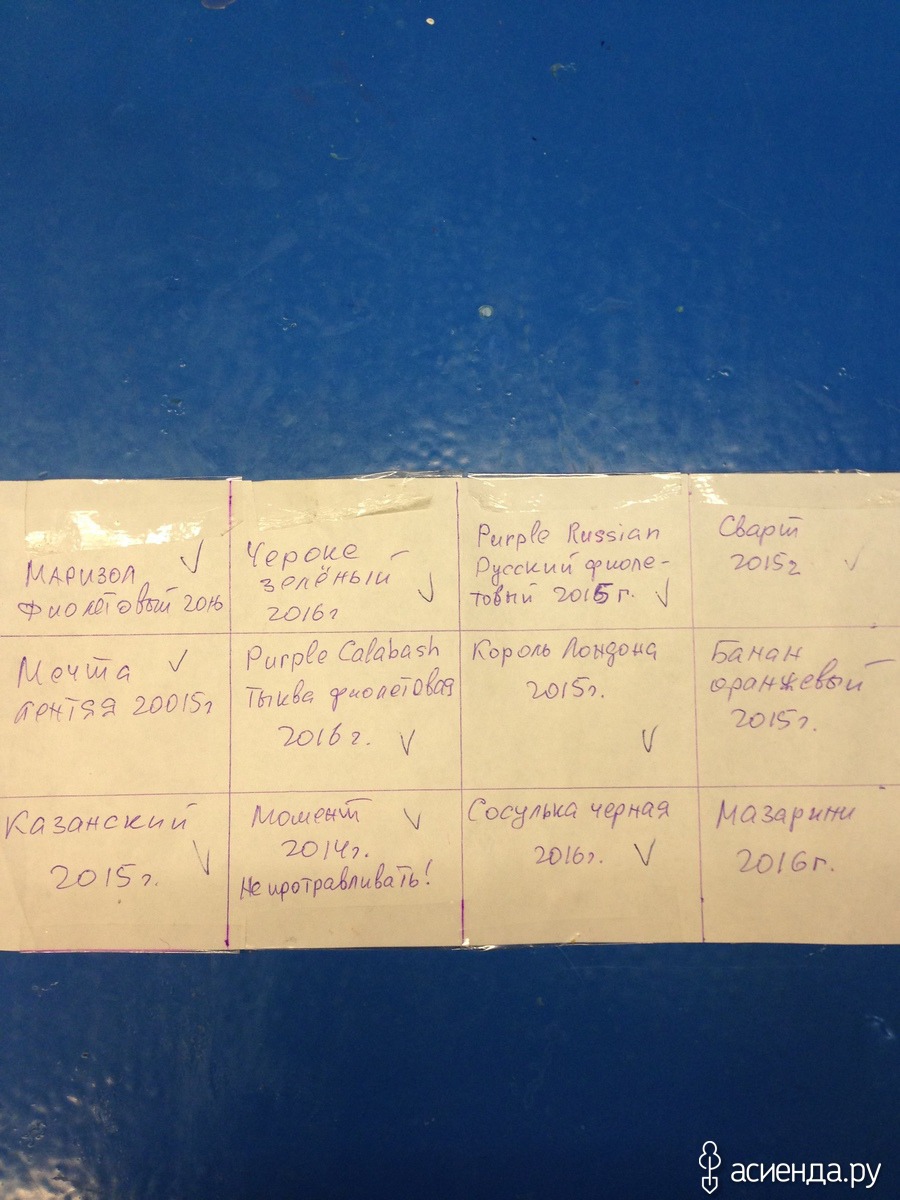 Маризол
фиолетовый 2016
Чероке
зелёный
2016г
Purple Russian
Русский фиоле-
товый 2015г.
Сварт
2015г
Мечта
лентяя 20015г
Purple Calabash
Тыква фиолетовая
2016г.
Король Лондона
2015г.
Банан
оранжевый
2015г.
Казанский
2015г.
Момент
2014г.
Не протравливать!
Сосулька черная
2016г.
Мазарини
2016г.
асиенда.ру